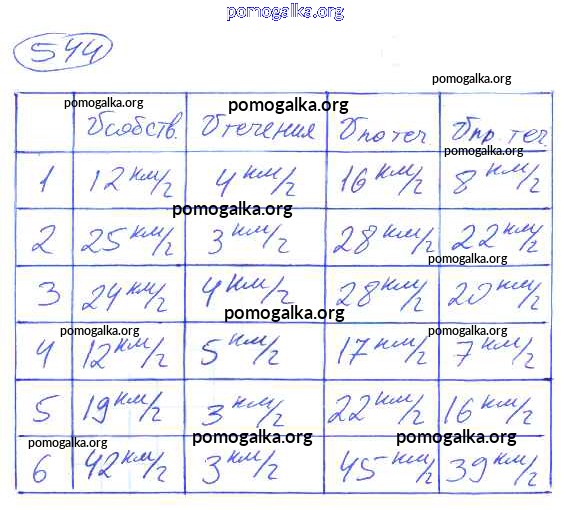 pomogalka.org
544
pomogalka.org
pomogalka.org pomogalka.org
Vсобств. Vтечения Vпо теч. Vпр. теч.
pomogalka.org
1 12 км/г 4 км/г 16 км/г 8 км/г
pomogalka.org
2 25 км/г 3 км/г 28 км/г 22 км/г
pomogalka.org
3 24 км/г 4 км/г 28 км/г 20 км/г
pomogalka.org
pomogalka.org pomogalka.org
4 12 км/г 5 км/г 17 км/г 7 км/г
5 19 км/г 3 км/г 22 км/г 16 км/г
pomogalka.org pomogalka.org pomogalka.org
6 42 км/г 3 км/г 45 км/г 39 км/г